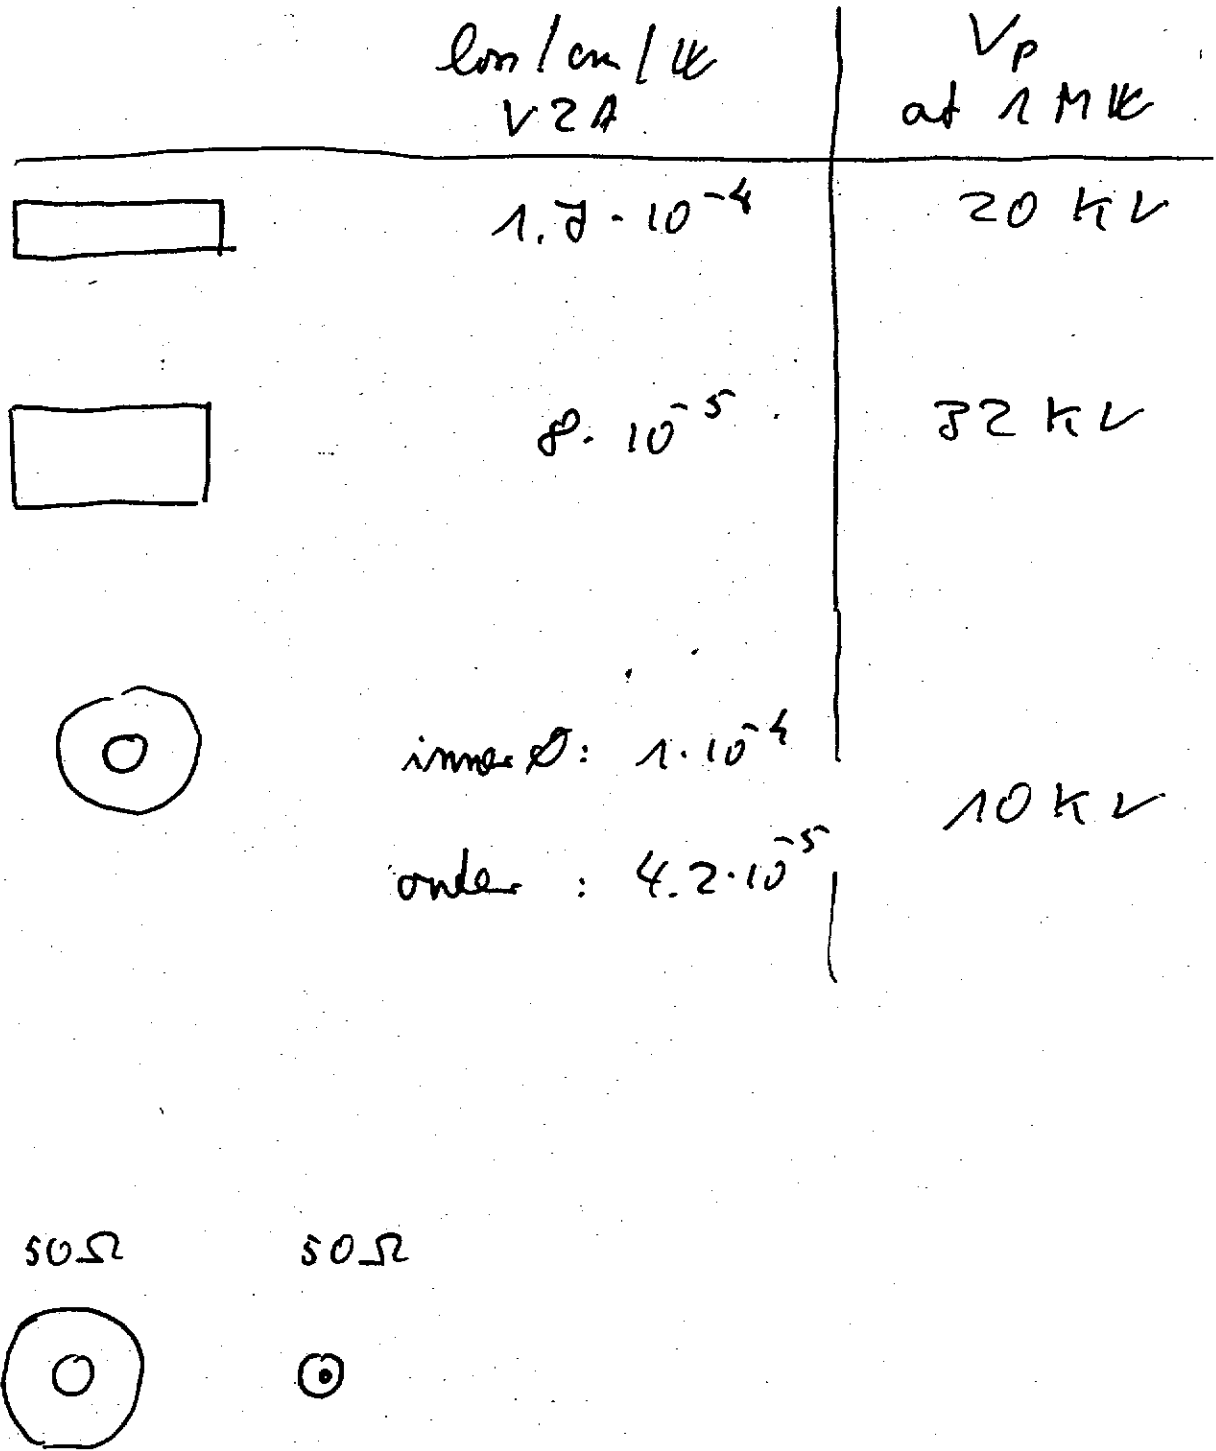 loss/cm/W
V2A
Vp
at 1 MW
1.7 · 10⁻⁴
20 KV
8 · 10⁻⁵
32 KV
inner Ø: 1 · 10⁻⁴
10 KV
outer : 4.2 · 10⁻⁵
50Ω 50Ω